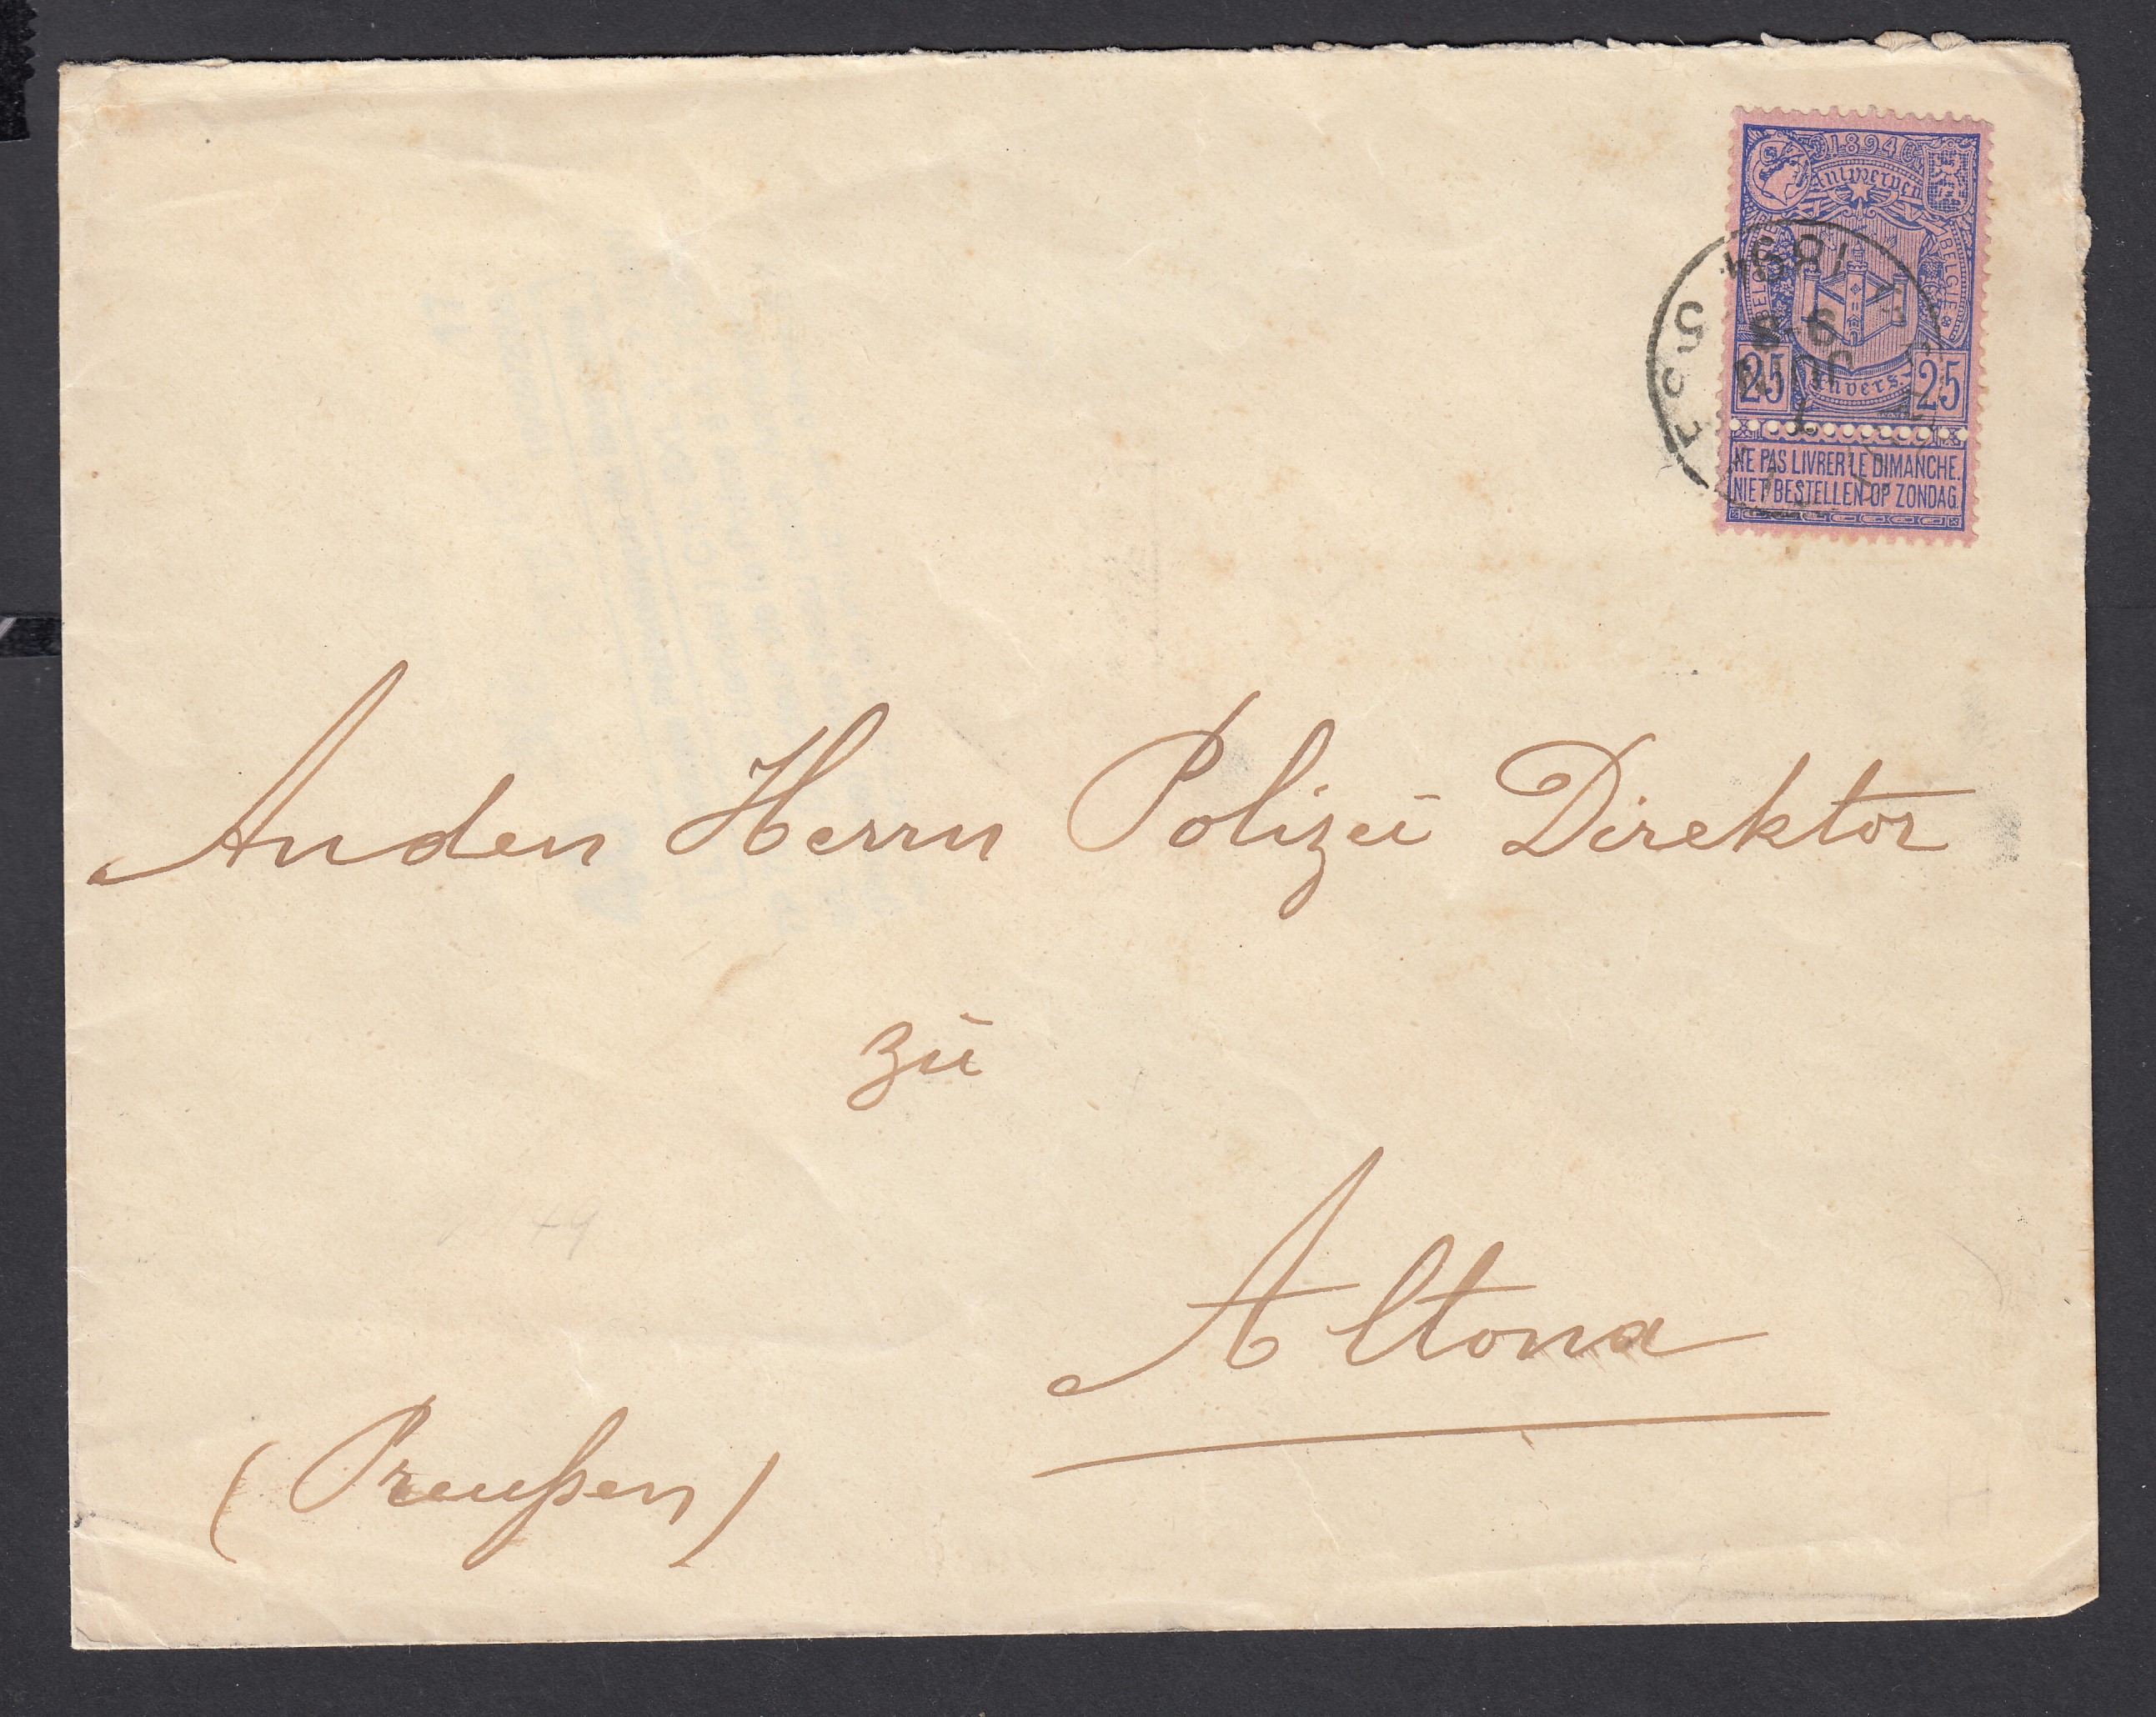 1894
Antwerpen
BELGIE
25 Anvers 25
NE PAS LIVRER LE DIMANCHE.
NIET BESTELLEN OP ZONDAG.
1894
JUIN
An den Herrn Polizei Direktor
zu
Altona
(Preußen)